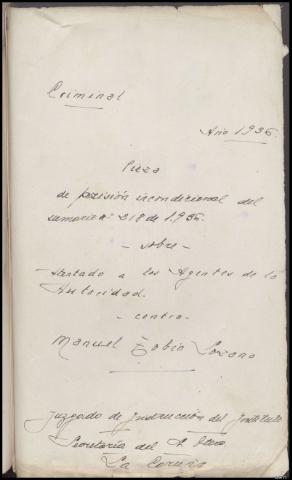 Criminal
Año 1936.
Pieza
de prisión incondicional del
sumario nº 218 de 1.936.
- sobre -
atentado a los Agentes de la
Autoridad.
- contra -
Manuel Tobio Lozano
Juzgado de Instrucción del Instituto
Secretaría del
La Coruña